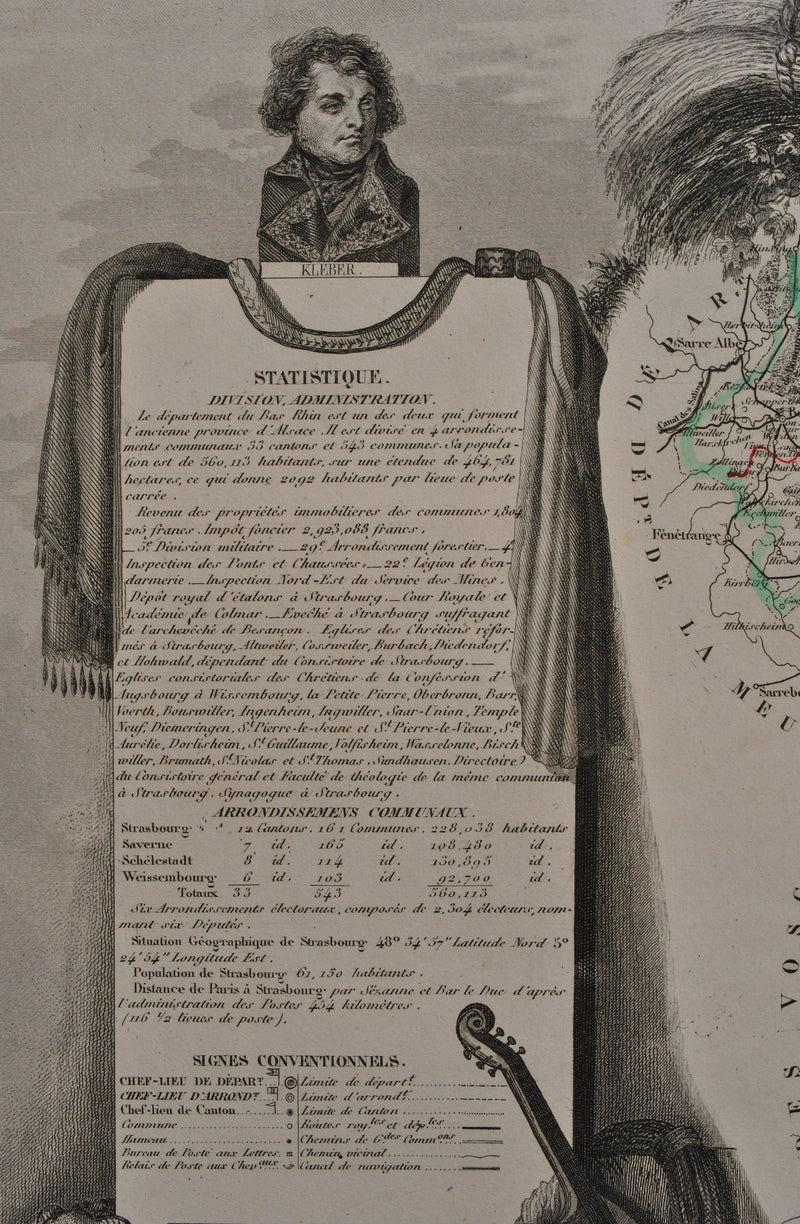 KLEBER.
STATISTIQUE.
DIVISION, ADMINISTRATION.
Le département du Bas Rhin est un des deux qui forment
l'ancienne province d'Alsace. Il est divisé en 4 arrondisse-
ments communaux 33 cantons et 543 communes. Sa popula-
tion est de 560,113 habitants, sur une étendue de 464,781
hectares, ce qui donne 2092 habitants par lieue de poste
carrée.
Revenu des propriétés immobilières des communes 1,804
205 francs. Impôt foncier 2,923,088 francs.
5e Division militaire. — 29e Arrondissement forestier. — 4e
Inspection des Ponts et Chaussées. — 22e Légion de Gen-
darmerie. — Inspection Nord-Est du Service des Mines.
Dépôt royal d'étalons à Strasbourg. — Cour Royale et
Académie de Colmar. — Evêché à Strasbourg suffragant
de l'archevêché de Besançon. Eglises des Chrétiens réfor-
més à Strasbourg, Altweiler, Cossweiler, Burbach, Diedendorf,
et Hohwald, dépendant du Consistoire de Strasbourg. —
Eglises consistoriales des Chrétiens de la Confession d'
Augsbourg à Wissembourg, la Petite Pierre, Oberbronn, Barr,
Woerth, Bouswiller, Ingenheim, Ingwiller, Saar-Union, Temple
Neuf, Diemeringen, St Pierre-le-Jeune et St Pierre-le-Vieux, Ste
Aurélie, Dorlisheim, St Guillaume, Wolfisheim, Wasselonne, Bisch
willer, Brumath, St Nicolas et St Thomas. Sundhausen. Directoire
du Consistoire général et Faculté de théologie de la même communion
à Strasbourg. Synagogue à Strasbourg.
ARRONDISSEMENS COMMUNAUX.
Strasbourg 12 Cantons. 161 Communes. 228,038 habitants
Saverne 7 id. 165 id. 108.480 id.
Schélestadt 8 id. 114 id. 130,895 id.
Weissembourg 6 id. 103 id. 92,700 id.
Totaux 33 543 560,113
Six Arrondissements électoraux, composés de 2,304 électeurs, nom-
mant six Députés.
Situation Géographique de Strasbourg 48° 34' 57" Latitude Nord 5°
24' 54" Longitude Est.
Population de Strasbourg 61,150 habitants.
Distance de Paris à Strasbourg par Sézanne et Bar le Duc d'après
l'administration des Postes 454 kilomètres.
(116 1/2 lieues de poste).
SIGNES CONVENTIONNELS.
CHEF-LIEU DE DÉPART.t Limite de départ.t
CHEF-LIEU D'ARRONDT. Limite d'arrondt.
Chef-lieu de Canton Limite de Canton
Commune Routes roy.les et dép.les
Hameau Chemins de Gdes Commons
Bureau de Poste aux Lettres. Chemin vicinal
Relais de Poste aux Chevaux Canal de navigation
DÉPT. DE LA MEU
Sarre Albe
Diedendorf
Fénétrange
Kirrberg
Hilbischeim
Sarreb
VOSG